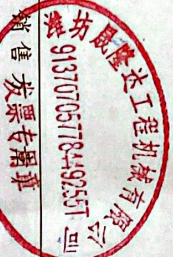 潍坊晟隆达工程机械有限公司
91370705778449255T
发票专用章
销售